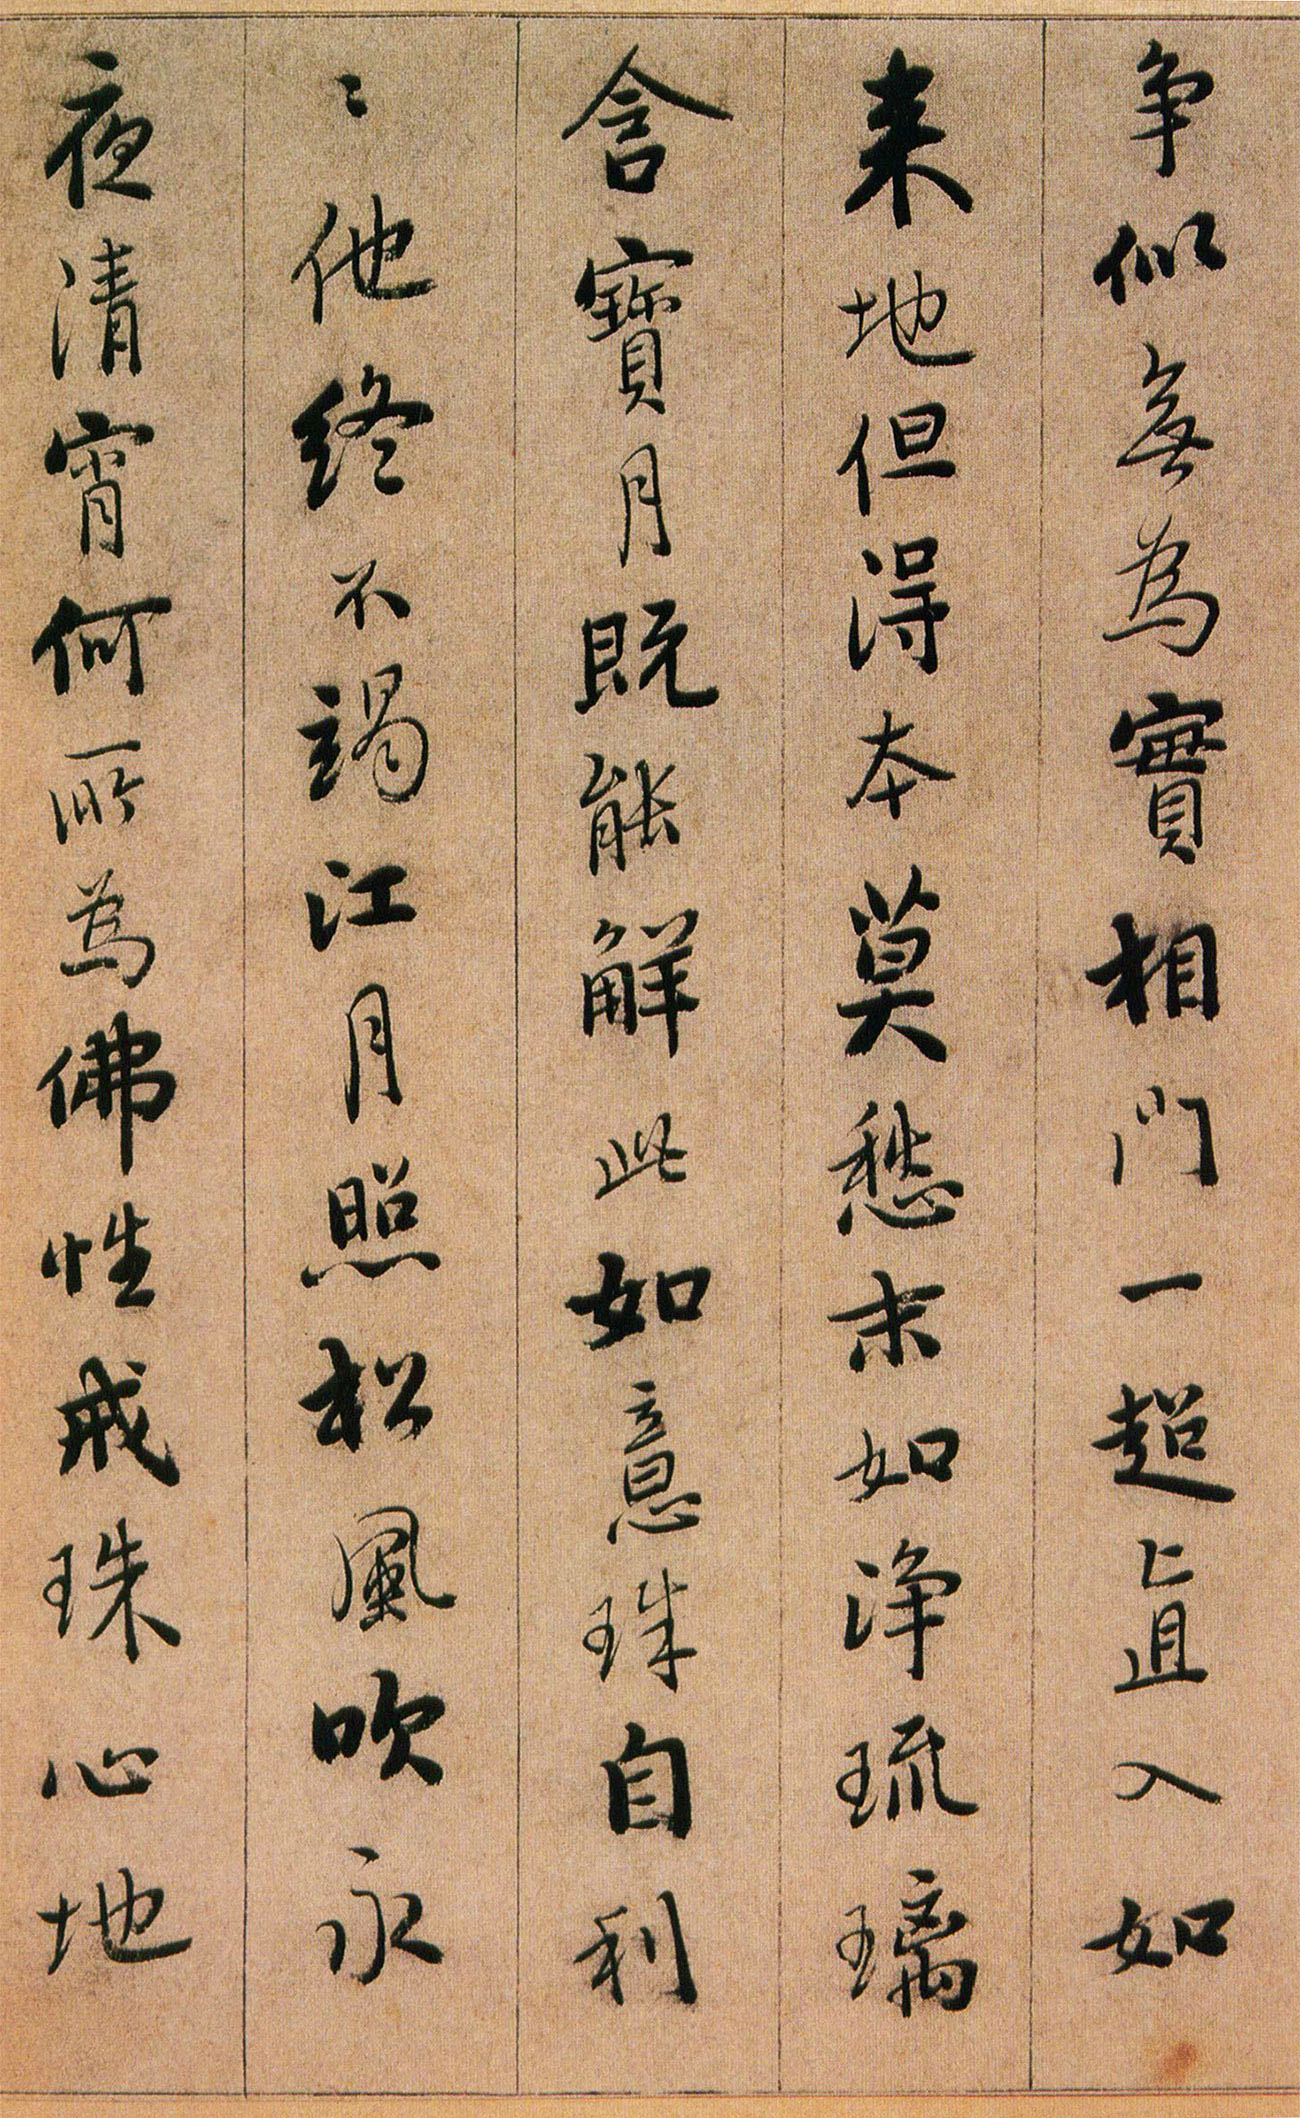 争似無為實相門一超直入如
来地但得本莫愁末如浄琉璃
含寳月既能解此如意珠自利
〻他終不竭江月照松風吹永
夜清宵何所為佛性戒珠心地